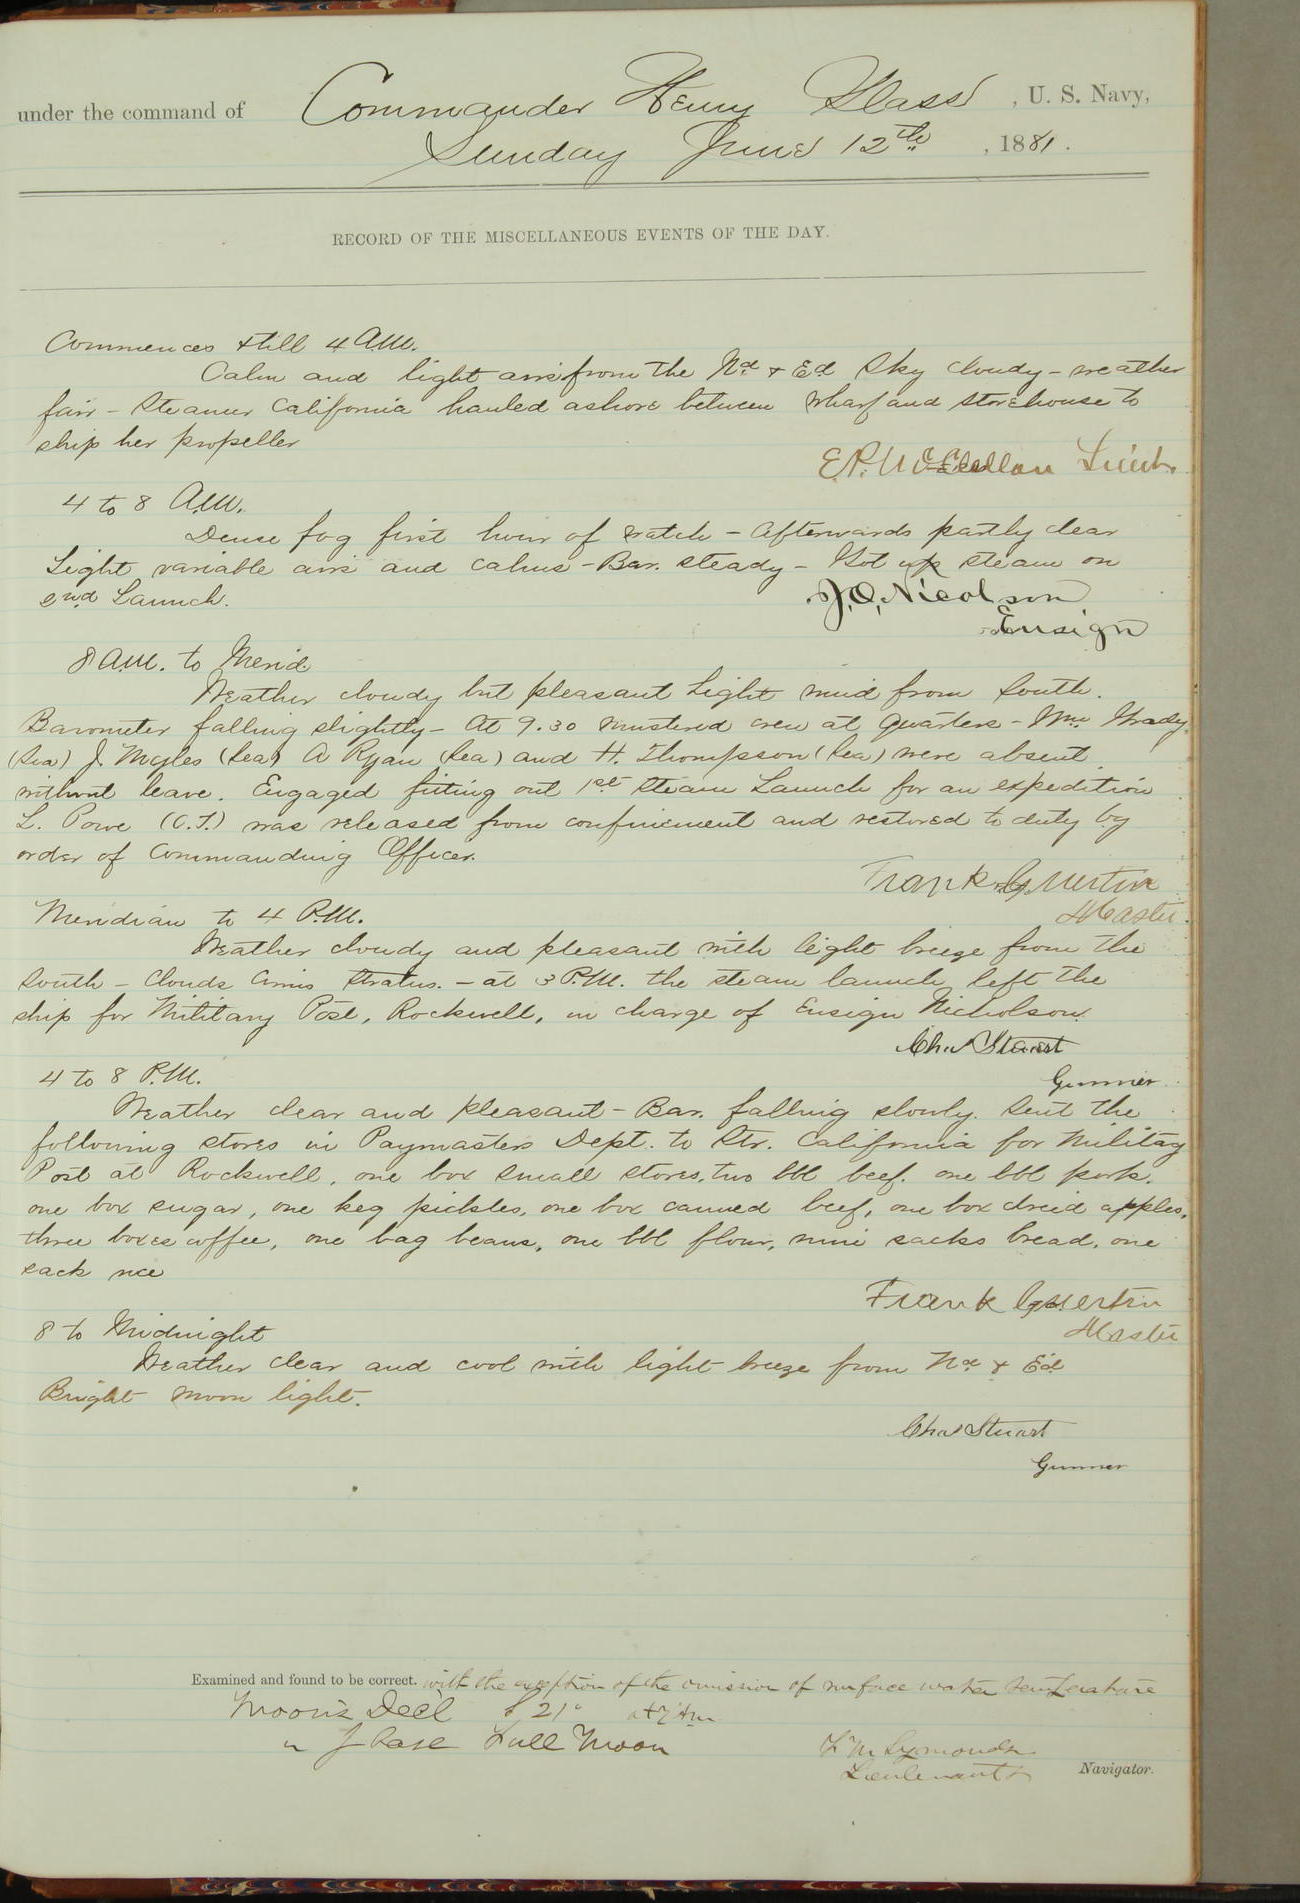 under the command of Commander Henry Glass , U. S. Navy,
Sunday June 12th , 1881.
RECORD OF THE MISCELLANEOUS EVENTS OF THE DAY.
Commences & till 4 A.M.
Calm and light airs from the Nd & Ed Sky cloudy - weather
fair - Steamer California hauled ashore between wharf and storehouse to
ship her propeller
E.P. McClellan Lieut.
4 to 8 A.M.
Dense fog first hour of watch - Afterwards partly clear
Light variable airs and calms - Bar. steady - Got up steam on
2nd Launch.
J.O. Nicolson
Ensign
8 A.M. to Merid
Weather cloudy but pleasant Light wind from South.
Barometer falling slightly - At 9.30 mustered crew at quarters - Wm. Grady
(Sea) J. Myles (Sea) A Ryan (Sea) and H. Thompson (Sea) were absent
without leave. Engaged fitting out 1st Steam Launch for an expedition
L. Powe (O.S.) was released from confinement and restored to duty by
order of Commanding Officer.
Frank Guertin
Master.
Meridian to 4 P.M.
Weather cloudy and pleasant with light breeze from the
South - clouds cirrus stratus. - at 3 P.M. the steam launch left the
ship for Military Post, Rockwell, in charge of Ensign Nicholson.
Chas Stuart
Gunner
4 to 8 P.M.
Weather clear and pleasant - Bar. falling slowly. Sent the
following stores in Paymasters Dept. to Str. California for Military
Post at Rockwell, one box small stores, two bbl beef. one bbl pork.
one box sugar, one keg pickles, one box canned beef, one box dried apples,
three boxes coffee, one bag beans, one bbl flour, nine sacks bread, one
sack rice
Frank Guertin
Master
8 to Midnight
Weather clear and cool with light breeze from Nd & Ed
Bright moon light.
Chas Stuart
Gunner
Examined and found to be correct. with the exception of the omission of surface water temperature
Moon's Decl S 21°
" Phase Full Moon
F M Symonds
Lieutenant &
Navigator.